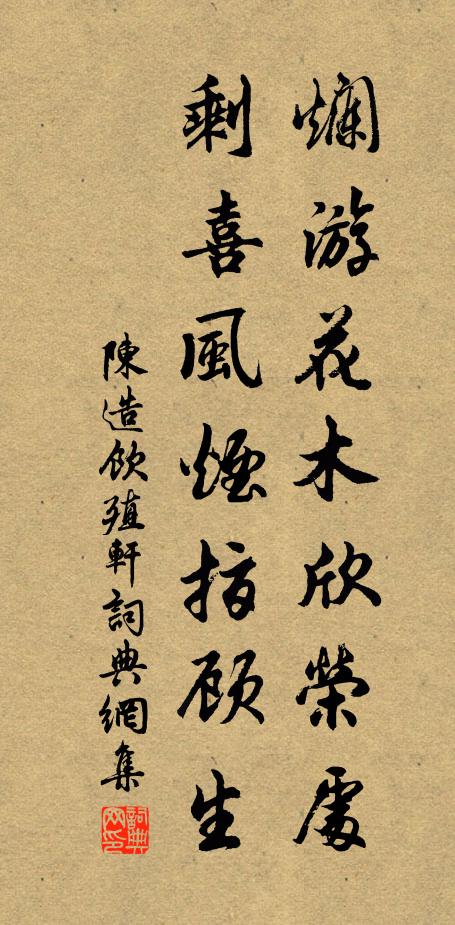 爛游花木欣榮處
剩喜風煙指顧生
陳造飲殖軒詞典網集
詞典網印